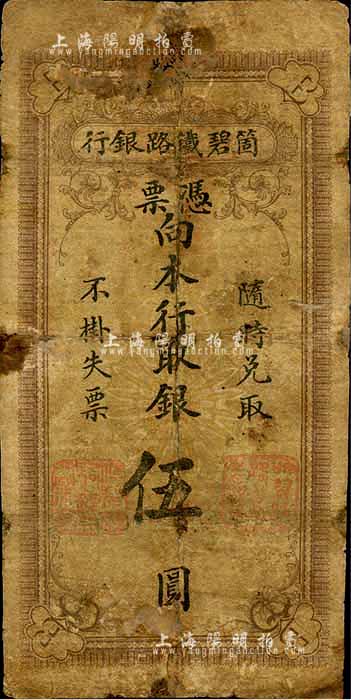 上海陽明拍賣
www.yangmingauction.com
箇碧鐵路銀行
憑票
向本行取銀伍圓
隨時兌取
不掛失票
上海陽明拍賣
www.yangmingauction.com
上海陽明拍賣
www.yangmingauction.com